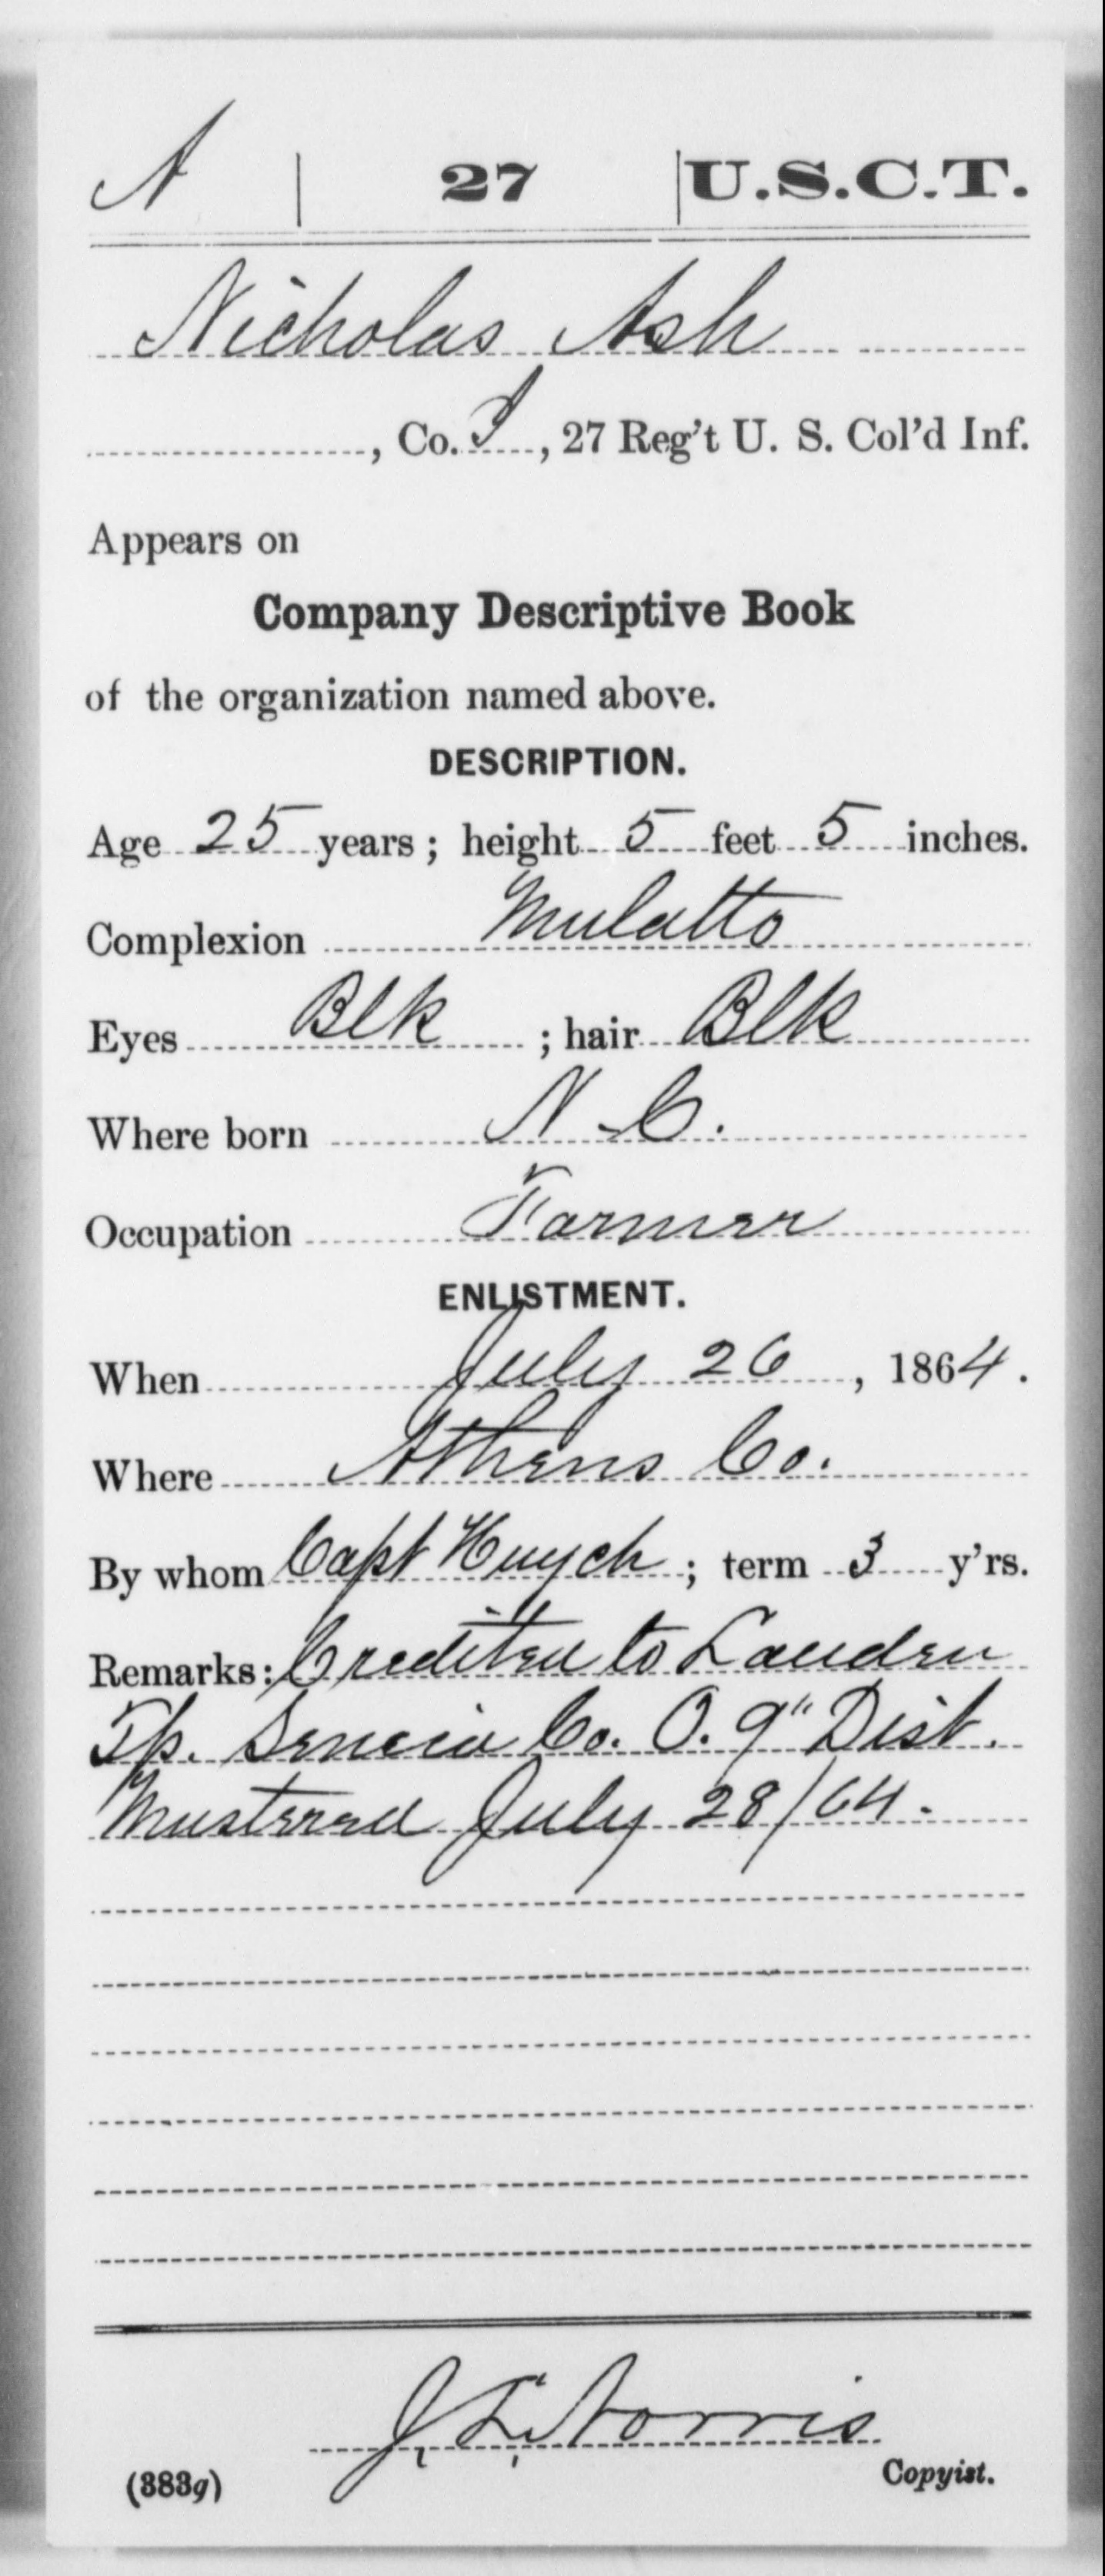 A | 27 | U.S.C.T.
Nicholas Ash
, Co. I, 27 Reg't U. S. Col'd Inf.
Appears on
Company Descriptive Book
of the organization named above.
DESCRIPTION.
Age 25 years; height 5 feet 5 inches.
Complexion Mulatto
Eyes Blk; hair Blk
Where born N.C.
Occupation Farmer
ENLISTMENT.
When July 26, 1864.
Where Athens Co.
By whom Capt ; term 3 y'rs.
Remarks: Credited to Louden
Tp. Seneca Co. O. 9" Dist.
Mustered July 28/64.
Norris
(383g) Copyist.